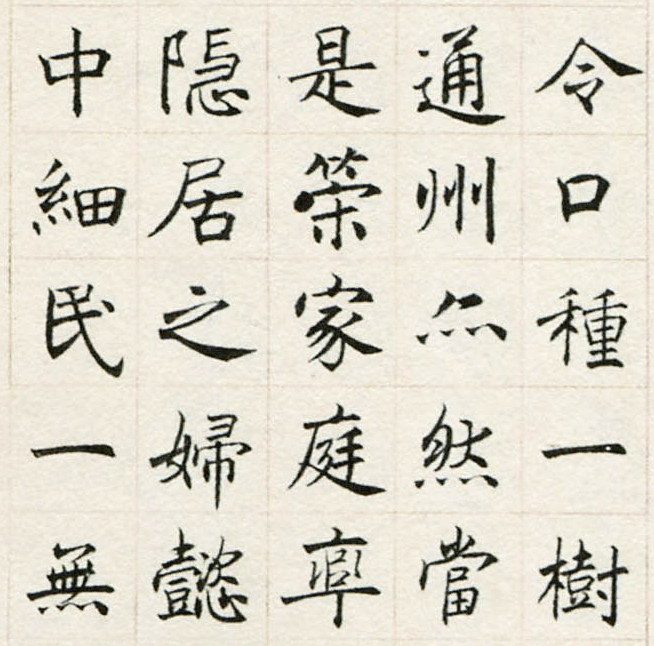 令口種一樹
通州亦然當
是策家庭率
隠居之婦懿
中細民一無